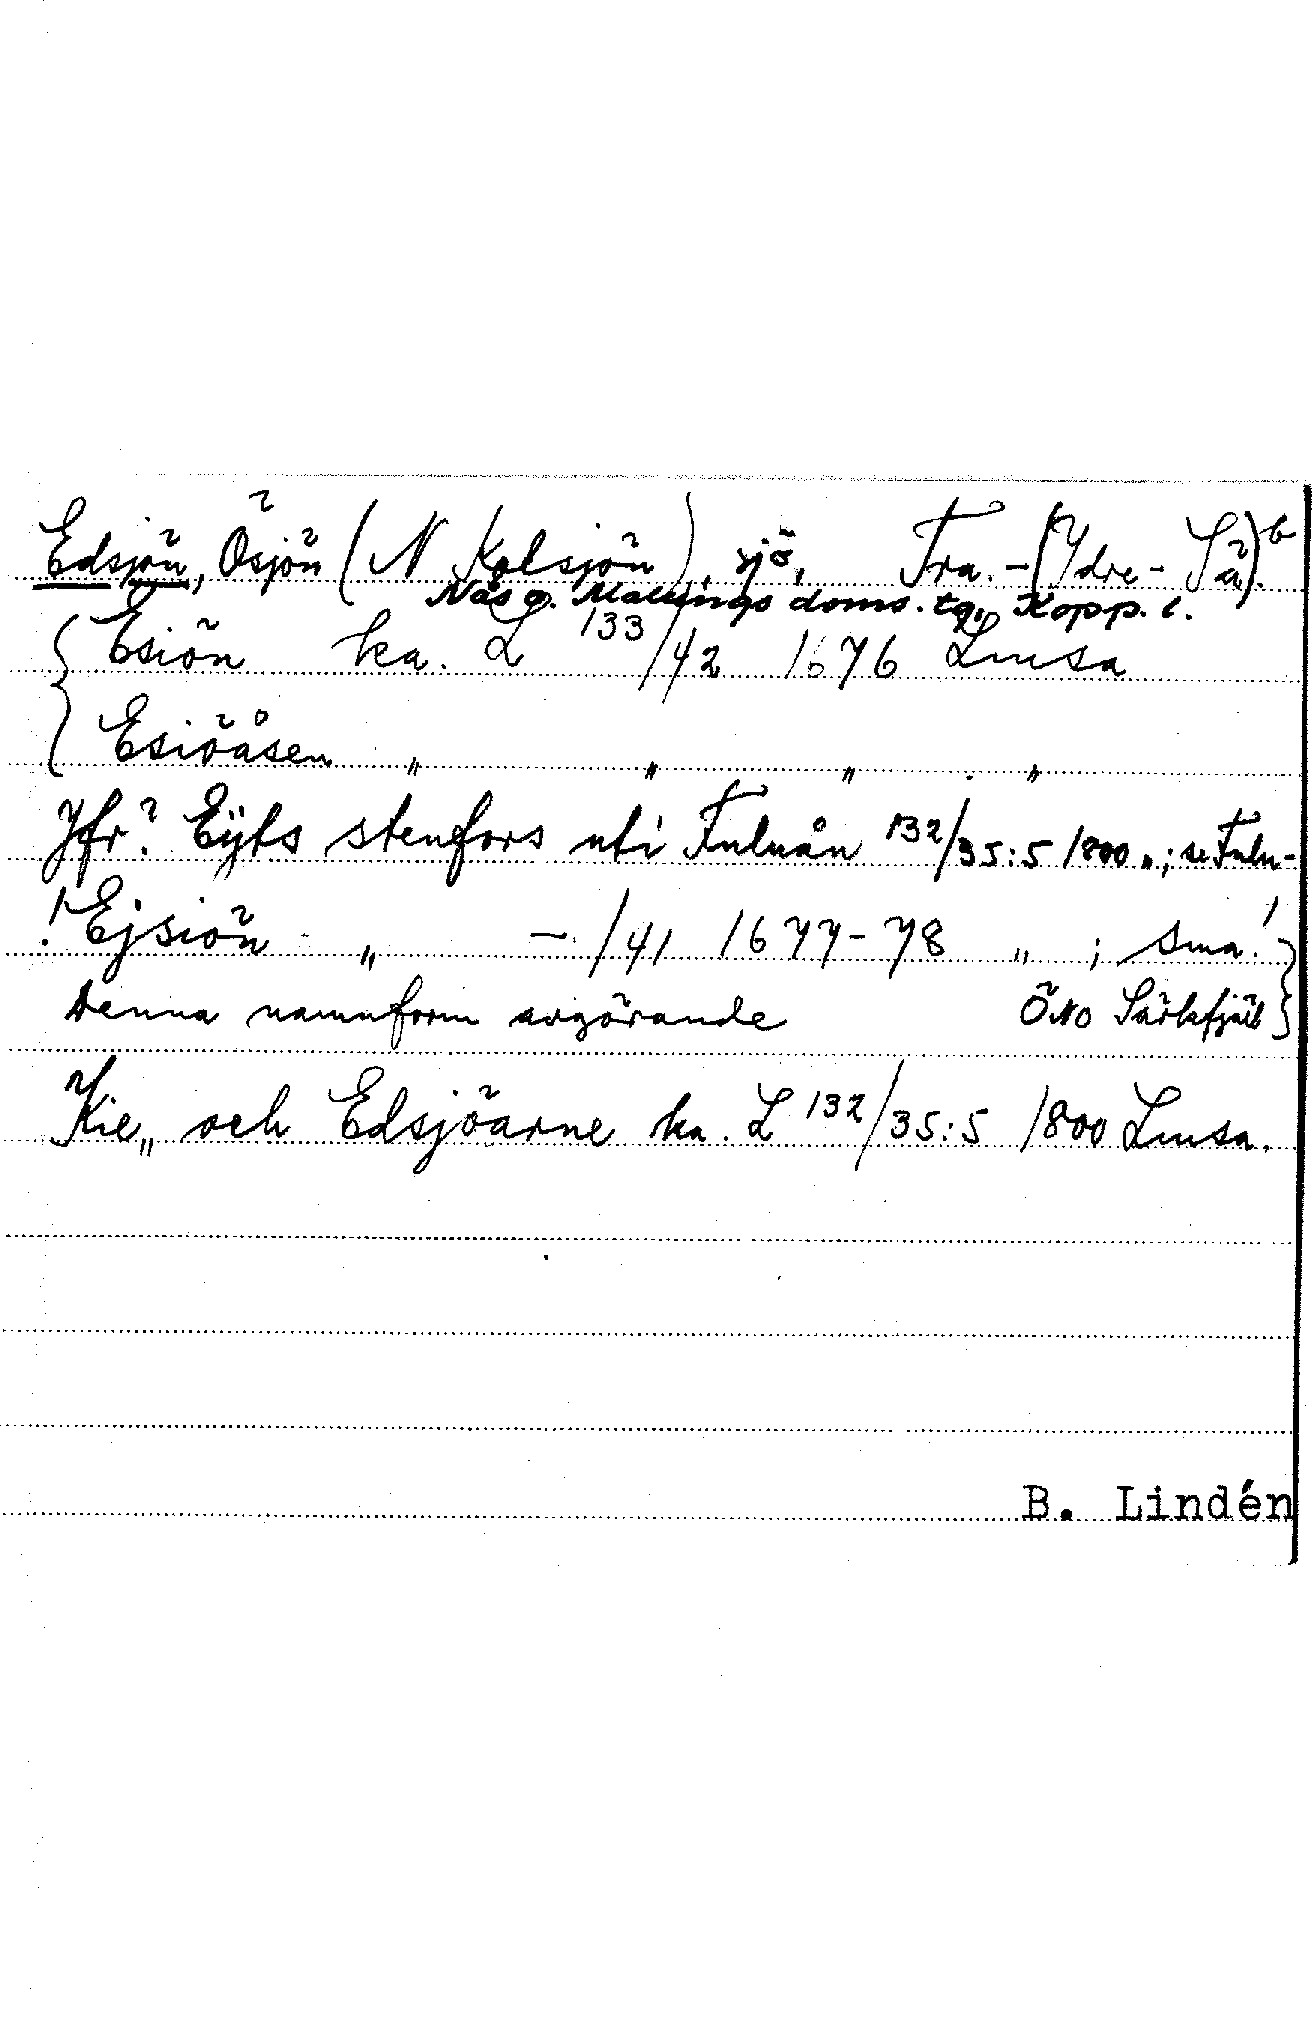 Edsjön, Ösjön (N Kolsjön), sjö, Tra. - (Ydre - Sä).b
Näs o. Malungs doms. tg., Kopp. l.
{ Esiön ka. L 133/42 1676 Lmsa
{ Esiöåsen " " " "
Jfr? Eÿts stenfors uti Fuluån 132/35:5 1800 "; se Fulu-
! Ejsiön " -/41 1677-78 " ; sma!
Denna namnform avgörande ÖNO Särkfjäll }
Kie„ och Edsjöarne ka. L 132/35:5 1800 Lmsa.
B. Lindén